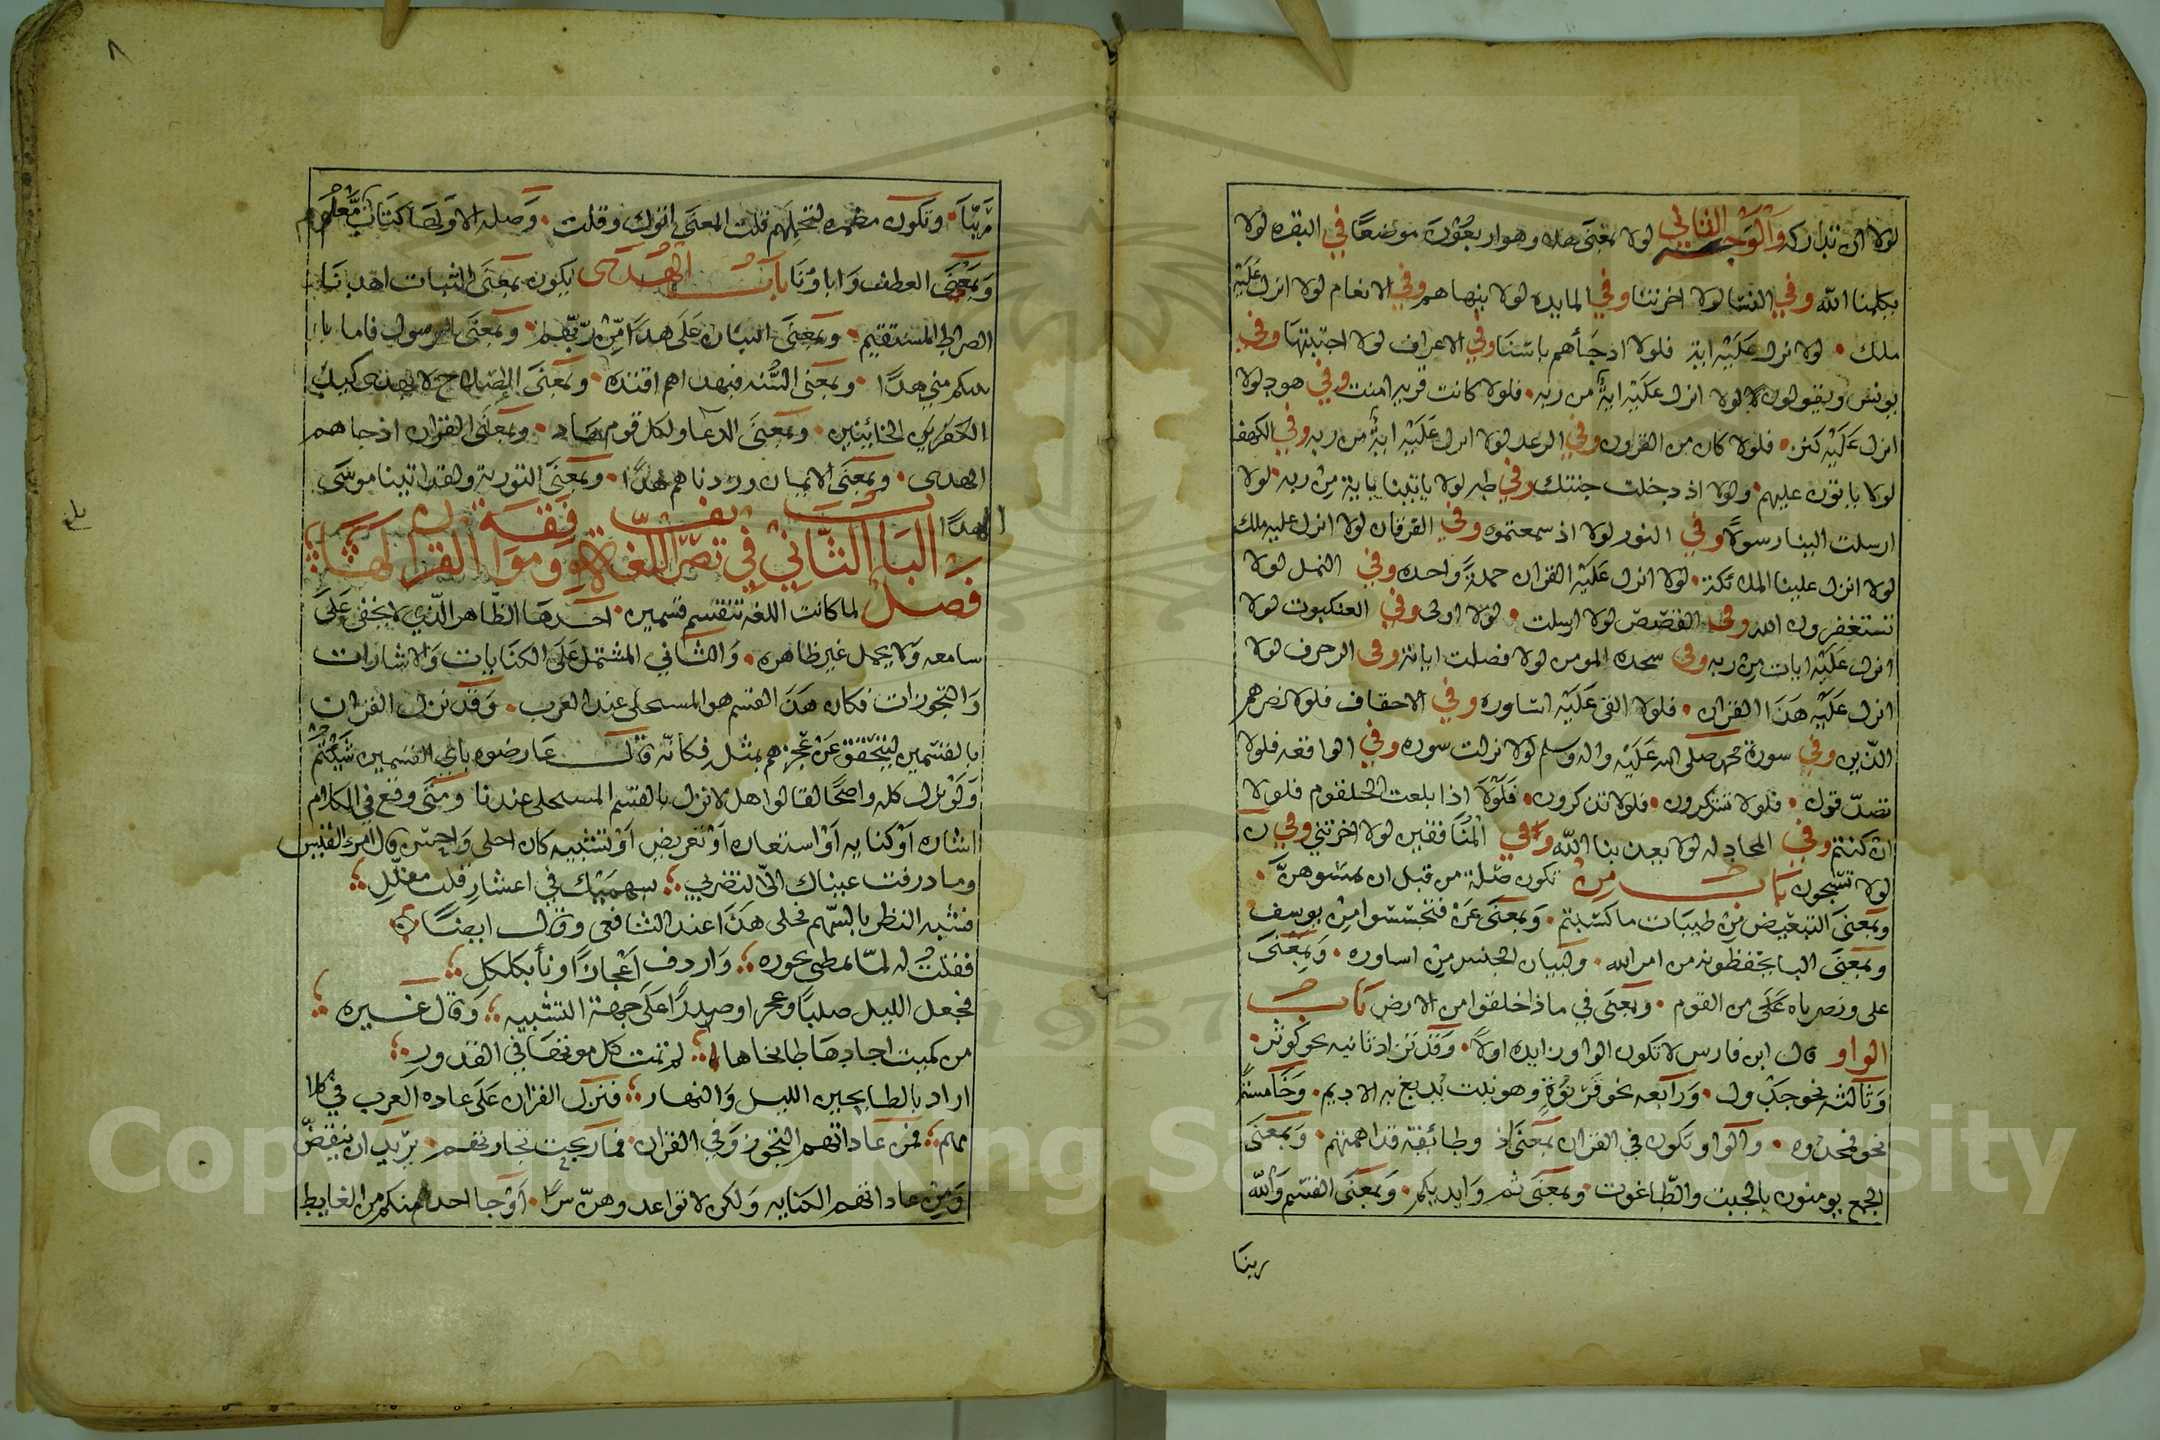 لولا ان تداركه والوجه الثاني لولا بمعنى هلا وهو اربعون موضعا في البقره لولا
يكلمنا الله وفي النسا لولا اخرتنا وفي المايده لولا ينهاهم وفي الانعام لولا انزل عليه
ملك • لولا نزل عليه اية فلولا اذ جأهم باسنا وفي الاعراف لولا اجتبيتها وفي
يونس ويقولون لولا انزل عليه اية من ربه • فلولا كانت قريه امنت وفي هود لولا
انزل عليه كنز • فلولا كان من القرون وفي الرعد لولا انزل عليه اية من ربه وفي الكهف
لولا ياتون عليهم • ولولا اذ دخلت جنتك وفي طه لولا ياتينا باية من ربه • لولا
ارسلت الينا رسولا وفي النور لولا اذ سمعتموه وفي الفرقان لولا انزل عليه ملك
لولا انزل علينا الملائكة • لولا انزل عليه القران جملة واحده وفي النمل لولا
تستغفرون الله وفي القصص لولا ارسلت • لولا اوتى وفي العنكبوت لولا
انزل عليه ايات من ربه وفي سجده المومن لولا فصلت اياته وفي الزخرف لولا
انزل عليه هذا القران • فلولا القى عليه اساوره وفي الاحقاف فلولا نصرهم
الذين وفي سورة محمد صلى الله عليه واله وسلم لولا نزلت سوره وفي الواقعه فلولا
تصدقون • فلولا تشكرون • فلولا تذكرون • فلولا اذا بلغت الحلقوم فلولا
ان كنتم وفي المجادله لولا يعذبنا الله وفي المنافقين لولا اخرتني وفي ن
لولا تسبحون باب من تكون صلة من قبل ان تمسوهن •
وبمعنى التبعيض من طيبات ما كسبتم • وبمعنى عن فتحسسوا من يوسف
وبمعنى البا يحفظونه من امر الله • ولبيان الجنس من اساوره • وبمعنى
على ونصرناه على من القوم • وبمعنى في ماذا خلقوا من الارض باب
الواو قال ابن فارس لا تكون الواو زايده اولا • وقد تزاد ثانيه نحو كوثر •
وثالثه نحو جدول • ورابعه نحو قرنوة وهو نبت يدبغ به الاديم • وخامسة
نحو قمحدوه • والواو تكون في القران بمعنى اذ وطائفة قد اهمتهم • وبمعنى
الجمع يومنون بالجبت والطاغوت • وبمعنى ثم وايديكم • وبمعنى القسم والله
ربنا
٨
ربنا • وتكون مضمره لتحملهم قلت المعنى اتوك وقلت • وصله الا ولها كتاب معلوم
وبمعنى العطف وابا ؤنا باب الهدى يكون بمعنى الثبات اهدنا
الصراط المستقيم • وبمعنى البيان على هدا من ربهم • وبمعنى الرسول فاما يا
تينكم مني هدا • وبمعنى السنه فبهداهم اقتده • وبمعنى الاصلاح لا يهدي كيد
الخائنين • وبمعنى الدعا ولكل قوم هاد • وبمعنى القران اذ جاهم
الهدى • وبمعنى الايمان وزدناهم هدا • وبمعنى التورية ولقد اتينا موسى
الهدا
الباب الثاني في تصريف اللغة وموافقة القران لها
فصل لما كانت اللغه تنقسم قسمين • احدها الظاهر الذي لا يخفى على
سامعه ولا يحمل غير ظاهره • والثاني المشتمل على الكنايات والاشارات
والتجوزات فكان هذا القسم هو المستحلى عند العرب • وقد نزل القران
بالقسمين ليتحقق عن عجزهم بمثله فكانه قال عارضوه باي القسمين شئتم
ولو نزل كله واضحا لقالوا هلا نزل بالقسم المستحلى عندنا ومتى وقع في الكلام
اشاره او كنايه او استعاره او تعريض او تشبيه كان احلى واحسن قال امرؤ القيس
وما درفت عيناك الا لتضربي ؛ بسهميك في اعشار قلب مقتل ؛
فشبه النظر بالسهم فحلى هذا عند السامع وقال ايضا
فقلت له لما تمطى بجوزه ؛ واردف اعجازا ونأ بكلكل ؛
فجعل لليل صلبا وعجزا وصدرا على جهة التشبيه ؛ وقال غيره ؛
من كميت اجادها طابخاها ؛ لم تمت كل موتها في القدور ؛
اراد بالطابخين الليل والنهار ؛ فنزل القران على عاده العرب في كلا
مهم ؛ فمن عاداتهم التجوز وفي القران • فما ربحت تجارتهم • يريد ان ينقض
ومن عاداتهم الكنايه ولكن لا تواعدوهن سرا • او جا احد منكم من الغايط
Copyright © King Saud University
1957